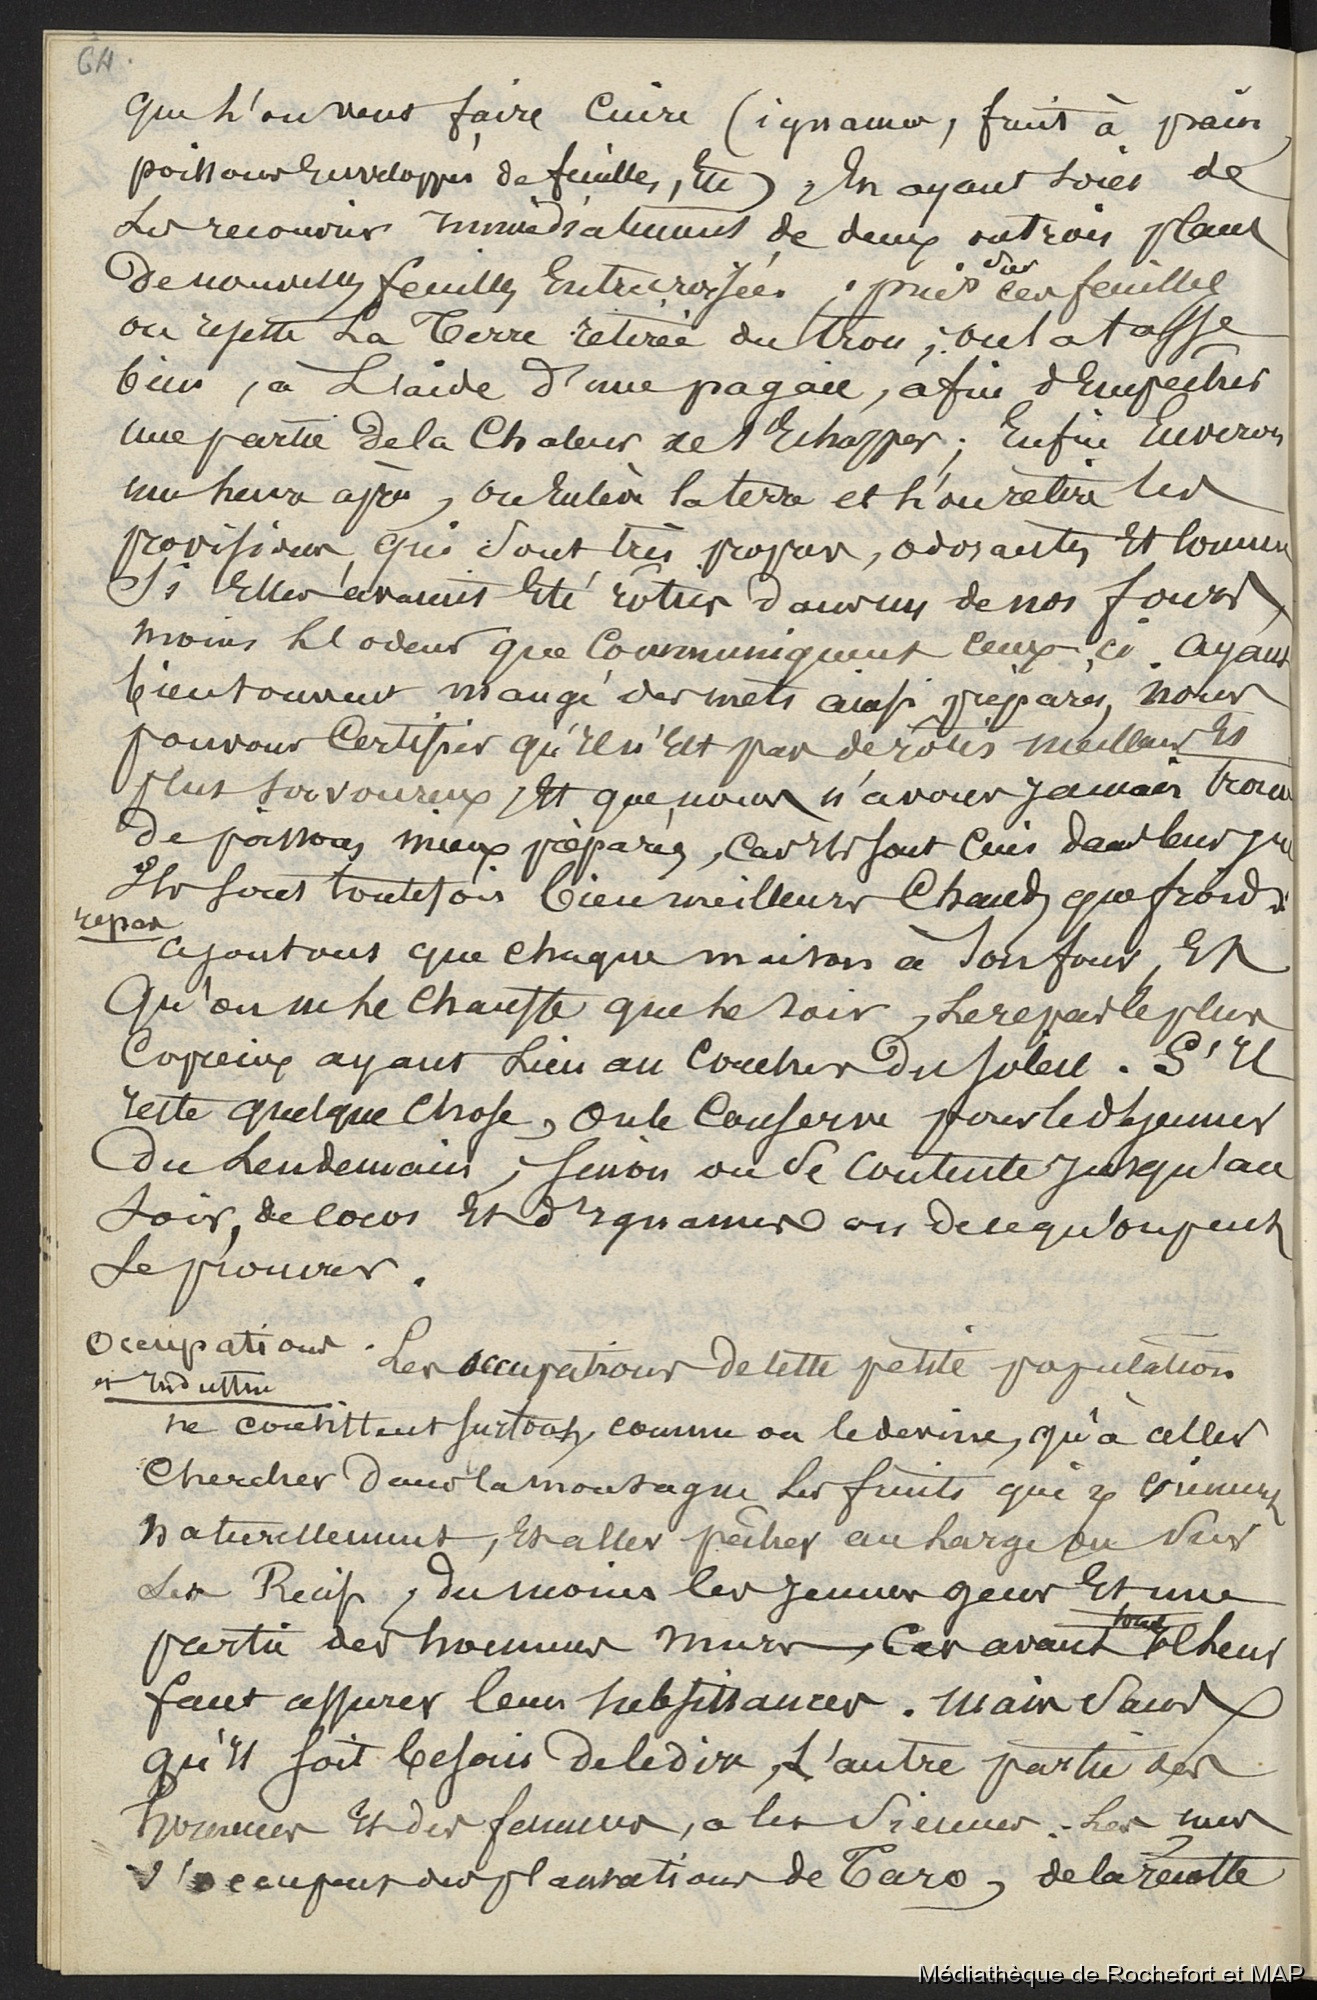 64.
que l'on veut faire cuire (ignames, fruit à pain,
poissons enveloppés de feuilles, etc), en ayant soin de
les recouvrir immédiatement de deux ou trois plans
de nouvelles feuilles entrecroisées ; puis sur ces feuilles
on rejette la Terre retirée du trou ; on la tasse
bien, à l'aide d'une pagaie, afin d'empêcher
une partie de la chaleur de s'échapper ; enfin environ
une heure après, on enlève la terre et l'on retire les
provisions, qui sont très propres, odorantes et comme
si elles avaient été rôties dans un de nos fours,
moins l'odeur que communiquent ceux-ci. Ayant
bien souvent mangé des mets ainsi préparés, nous
pouvons certifier qu'il n'est pas de rôtis meilleurs et
plus savoureux, et que nous n'avons jamais trouvé
de poissons mieux préparés, car ils sont cuis dans leur jus
Ils sont toutefois bien meilleurs chauds que froids.
repas
ajoutons que chaque maison a son four, et
qu'on ne le chauffe que le soir, le repas le plus
copieux ayant lieu au coucher du soleil. S'il
reste quelque chose, on le conserve pour le déjeuner
du lendemain, sinon on se contente jusqu'au
soir, de cocos et d'ignames ou de ce qu'on peut
se procurer.
Occupations
et Industrie
Les occupations de cette petite population
ne consistent surtout, comme on le devine, qu'à aller
chercher dans la montagne les fruits qui y viennent
naturellement, et aller pêcher au large ou sur
les Récifs, du moins les jeunes gens et une
partie des hommes murs, car avant tout il leur
faut assurer leurs subsistances. mais sans
qu'il soit besoin de le dire, l'autre partie des
hommes et des femmes, a les siennes. Les unes
s'occupent des plantations de Taro, de la récolte
Médiathèque de Rochefort et MAP